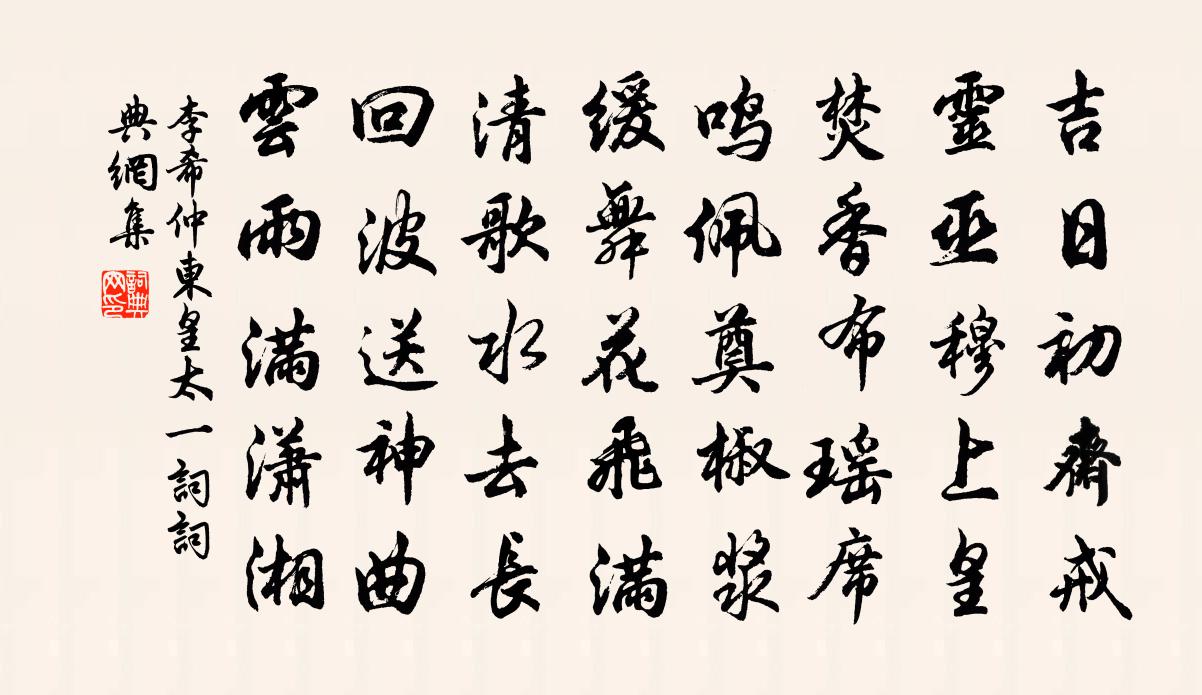 吉日初齋戒
靈巫穆上皇
焚香布瑤席
鳴佩奠椒漿
緩舞花飛滿
清歌水去長
回波送神曲
雲雨滿瀟湘
李希仲東皇太一詞詞
典網集
詞典網印